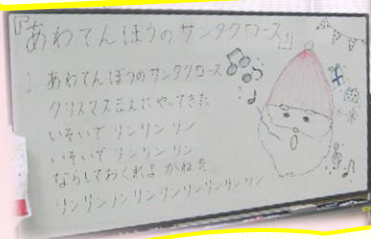 『あわてんぼうのサンタクロース』
1. あわてんぼうのサンタクロース
クリスマスまえにやってきた
いそいで リンリン リン
いそいで リンリン リン
ならしておくれよ かねを
リンリンリンリンリンリンリンリンリン